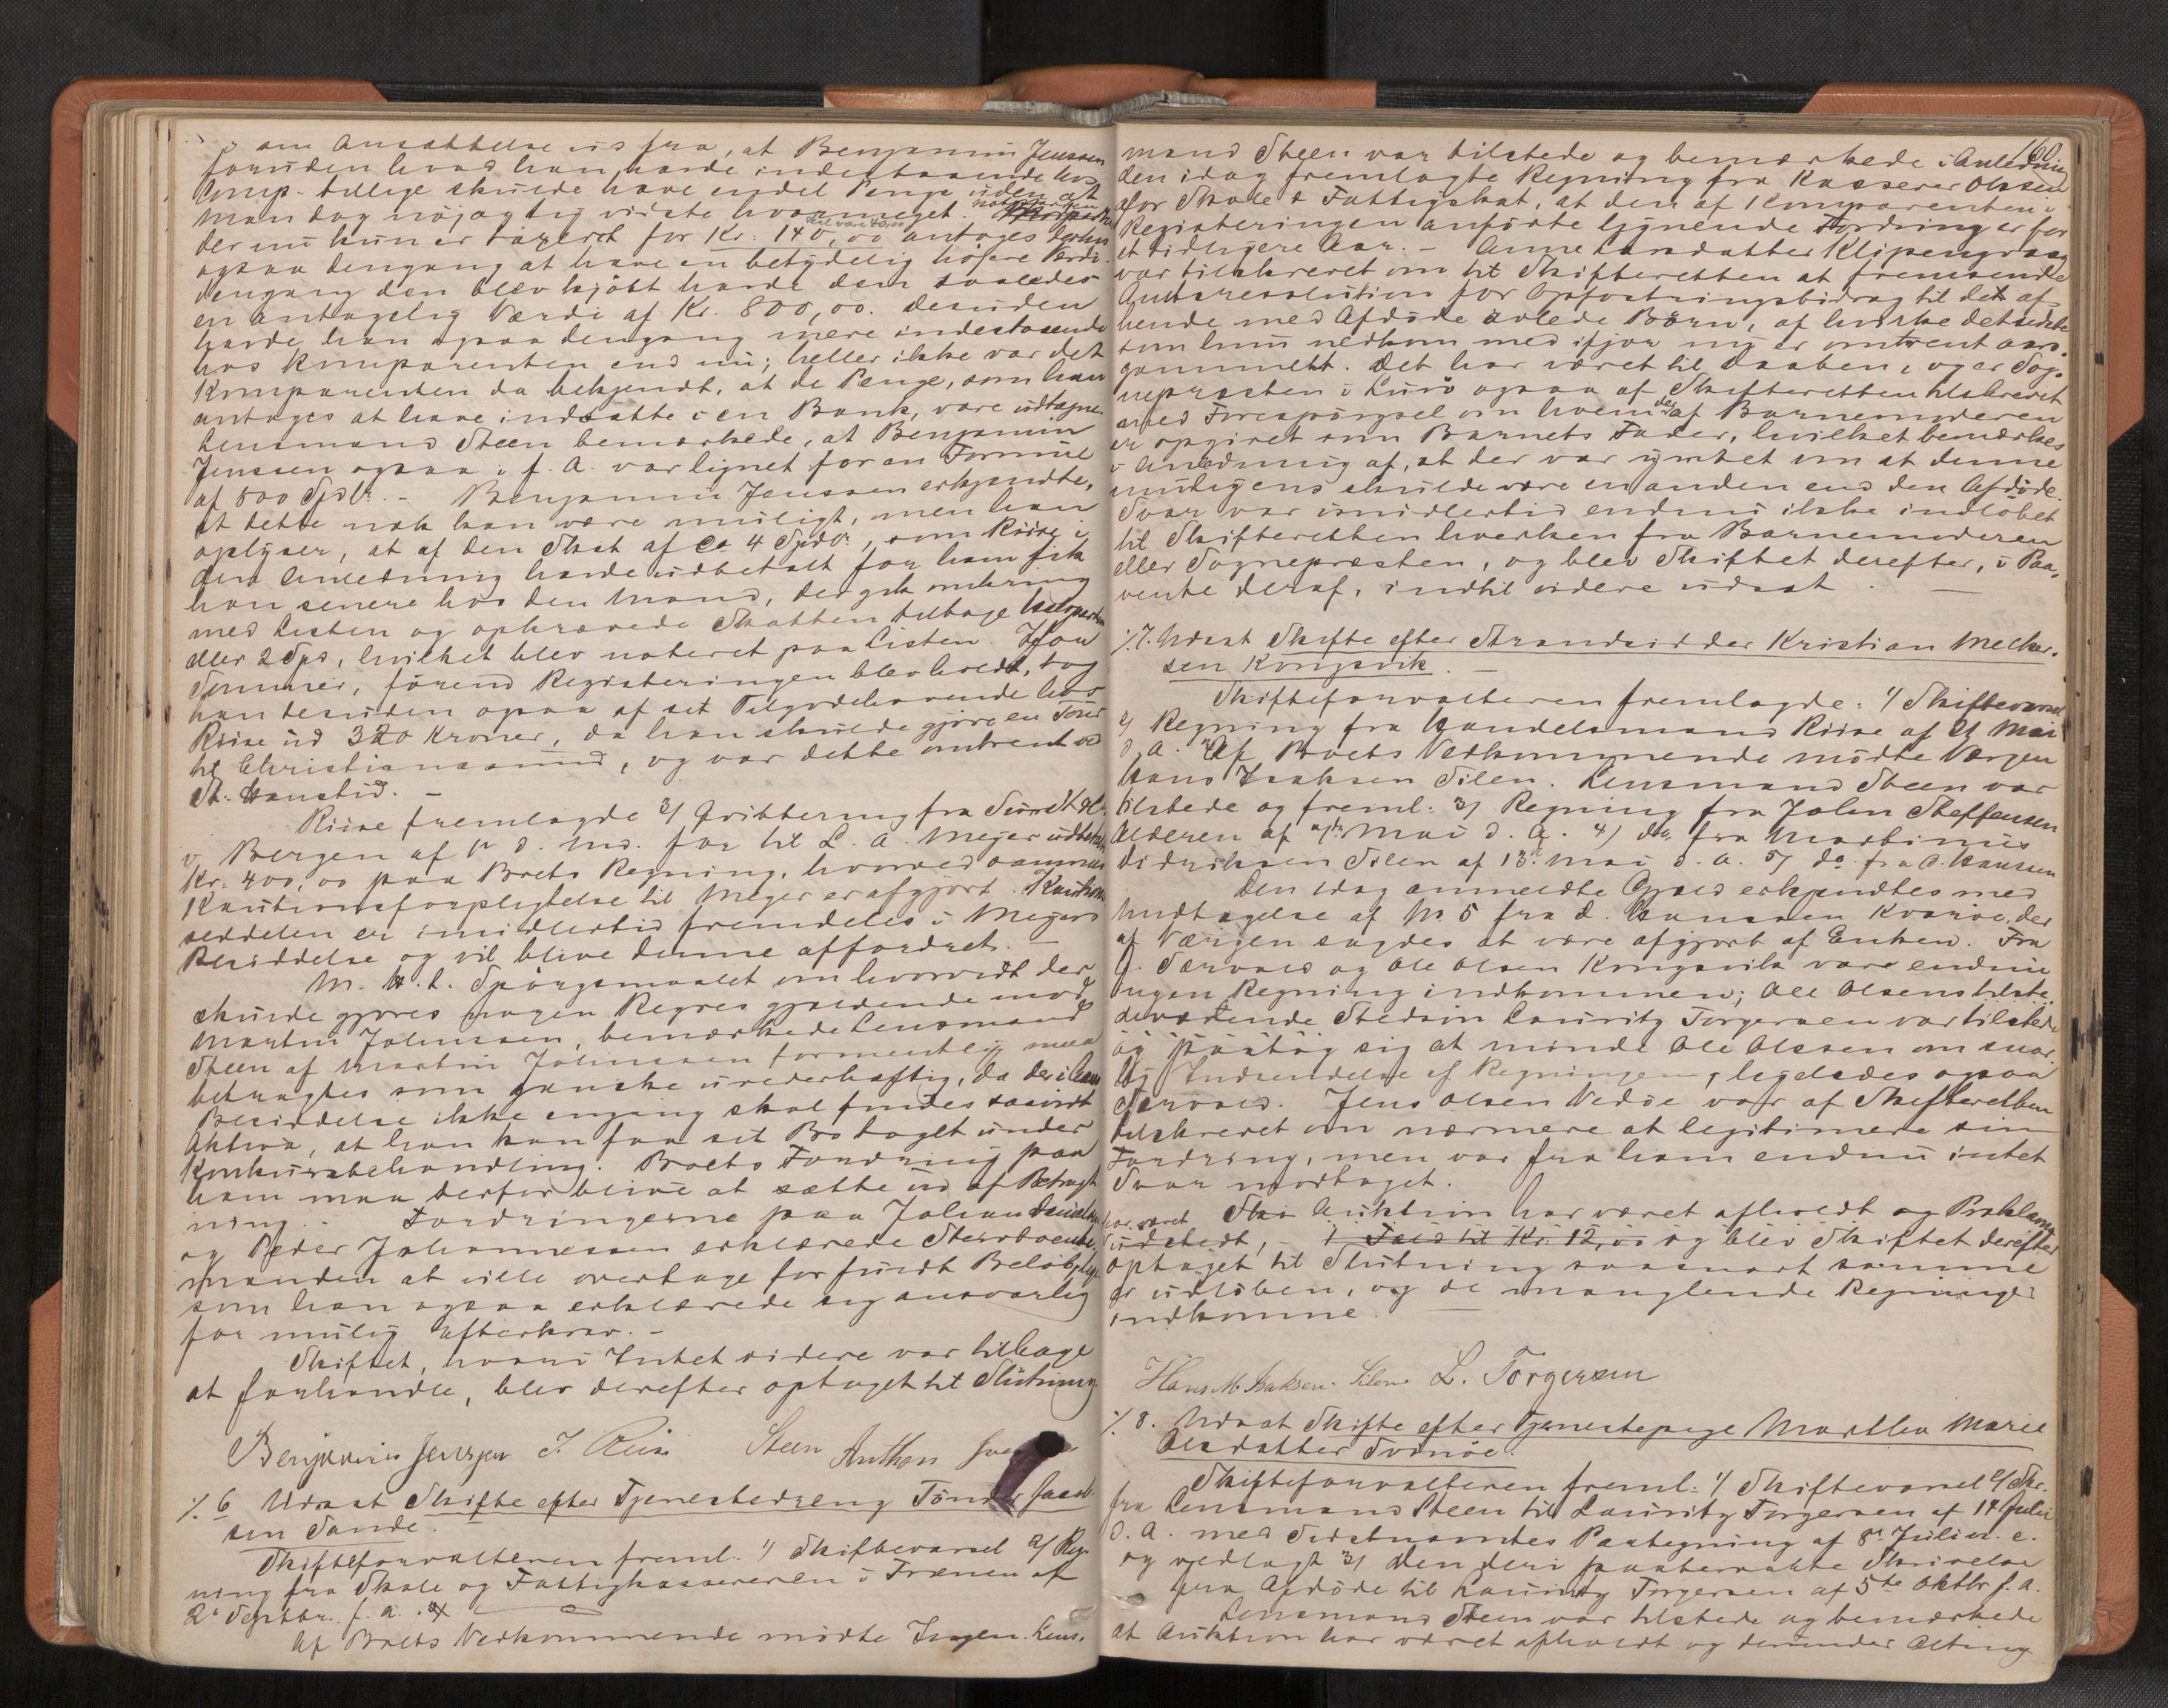 om Ansættelse ud fra, at Benjamin Jenssen
foruden hvad han havde indestaaende hos
Comp. tillige skulde have endel Penge uden at
man dog nøjagtig vidste hvormeget.
der nu kun er taxeret for Kr. 140,00 antages
ogsaa dengang at have en betydelig høiere Værdi.
dengang den blev kjøbt havde den saaledes
en antagelig Værdi af Kr. 800,00. desuden
havde han ogsaa dengang mere indestaaende
hos Komparenten end nu; heller ikke var det
Komparenten da bekjendt, at de Penge, som han
antages at have indsatte i en Bank, vare udtagne.
Lensmand Steen bemærkede, at Benjamin
Jenssen ogsaa i f. A. var lignet for en Formue
af 800 Spdlr. - Benjamin Jenssen erkjendte,
at dette nok kan være muligt, men han
oplyser, at af den Skat af Ca 4 Spdlr., som Riise i
den Anledning havde udbetalt for ham fik
han senere hos den Mand, der gik omkring
med Listen og opkrævede Skatten tilbage Halvparten
eller 2 Spd, hvilket blev noteret paa Listen. Ifjor
Sommer, førend Registeringen blev holdt, tog
han desuden ogsaa af sit Tilgodehavende hos
Riise ud 320 Kroner, da han skulde gjøre en Tour
til Christianssund, og var dette omtrent ved
St. Hanstid. -
Riise fremlagde 3/ Qvittering fra
v. Bergen af d. Md. for til L. A. Meyer udbetalt
Kr. 400,00 paa Boets Regning, hvorved sammes
Kautionsforpligtelse til Meyer er afgjort. Kautions
seddelen er imidlertid fremdeles i Meyers
Besiddelse og vil blive denne affordret. -
M. H. t. Spørgsmaalet om hvorvidt der
skulde gjøres nogen Regres gjældende mod
Martin Johnssen, bemærkede Lensmand
Steen af Martin Johnssen formentlig maa
betragtes som ganske uvederhæftig, da der i hans
Besiddelse ikke engang skal findes saavidt
Aktiva, at han kan faa sit Bo taget under
Konkursbehandling. Boets Fordring paa
ham maa derfor blive at sætte ud af Betragt
ning. - Fordringerne paa Johan
og Peder Johannessen erklærede
manden at ville overtage for fuldt Beløb, lige
som han ogsaa erklærede sig ansvarlig
for mulig Efterkrav. -
Skiftet, hvori Intet videre var tilbage
at forhandle, blev derefter optaget til Slutning.
Benjamin Jenssen J. Riise Steen Anthon
%. 6 Udsat Skifte efter Tjenestedreng
sen Sande.
Skifteforvalteren freml. 1/ Skiftevarsel 2/ Reg-
ning fra Skole og Fattigkassereren i Trænen af
2' Septbr. f. a.
Af Boets Vedkommende mødte Ingen. Lens.
160
mand Steen var tilstede og bemærkede i Anledning
den idag fremlagte Regning fra Kasserer Olssen
for Skole & Fattigskat, at den af Komparenten i
Registeringen anførte lignende Fordring er for
et tidligere Aar. - Anne Larsdatter Klipengvaag
var tilskreret om til Skifteretten at fremsende
Amtsresolution for Opfostringsbidrag til det af
hende med Afdøde avlede Børn, af hvilke det sidste
som hun nedkom med ifjor nu er omtrent aars-
gammelt. Det har været til Daaben, og er Sog-
nepræsten i Lurø ogsaa af Skifteretten tilskrevet
med Forespørgsel om hvem der af Barnemoderen
er opgivet som Barnets Fader, hvilket bemærkes
i Anledning af, at der var ymtet om at denne
muligens skulde være en anden end den Afdøde.
Svar var imidlertid endnu ikke indløbet
til Skifteretten hverken fra Barnemoderen
eller Sognepræsten, og blev Skiftet derefter, i Paa-
vente deraf, indtil videre udsat. -
%. 7. Udsat Skifte efter Strandsidder Kristian Melker-
sen Kongsvik. -
Skifteforvalteren fremlagde: 1/ Skiftevarsel
2/ Regning fra Handelsmand Riise af 21 Mai
d. A. Af Boets Vedkommende mødte Værgen
Hans Isaksen Silen. Lensmand Steen var
tilstede og freml: 3/ Regning fra John Steffensen
Alderen af Mai d. A. 4/ do. fra Martinus
Didriksen Silen af 13. Mai d. A. 5/ do. fra d. Hanssen
Den idag anmeldte Gjæld erkjendtes med
Undtagelse af No 5 fra d. Hanssen Kvarøe, der
af Værgen sagdes at være afgjort af Enken. Fra
J. Sørvald og Ole Olsen Kongsvik vare endnu
ingen Regning indkommen; Ole Olsens tilste-
deværende Stedsøn Lauritz Torgersen var tilstede
og paatog sig at minde Ole Olssen om snar-
lig Indsendelse af Regningen, ligeledes ogsaa
Sørvald. Jens Olsen Vedøe var af Skifteretten
tilskrevet om nærmere at legitimere sin
Fordring, men var fra ham endnu intet
Svar modtaget.
Auktion har været afholdt og Proklama
har været
udstedt, - og blev Skiftet derefter
optaget til Slutning saasnart samme
er udløben, og de manglende Regninger
indkomme. -
Hans M. Isaksen Silen L. Torgersen
%. 8. Udsat Skifte efter Tjenestepige Martha Marie
Olsdatter Svinøe.
Skifteforvalteren freml: 1/ Skiftevarsel 2/ Skr.
fra Lensmand Steen til Lauritz Torgersen af 14 Juli
d. A. med Sidstnævntes Paategning af 8' Juli s. e.
og vedlagt 3/ den deri paaberaabte Skrivelse
fra Afdøde til Lauritz Torgersen af 5te Oktbr f. a.
Lensmand Steen var tilstede og bemærkede
at Auktion har været afholdt og derunder Alting